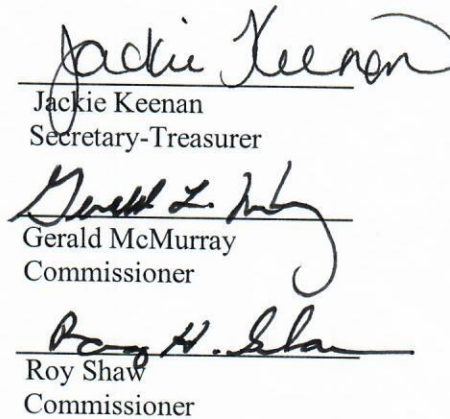 Jackie Keenan
Jackie Keenan
Secretary-Treasurer
Gerald L.
Gerald McMurray
Commissioner
Roy H. Shaw
Roy Shaw
Commissioner